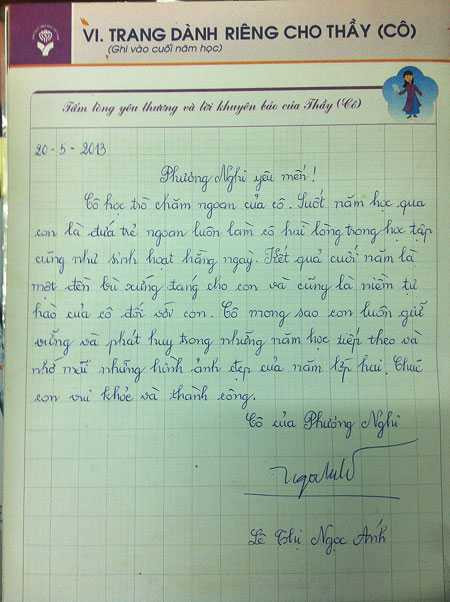 VI. TRANG DÀNH RIÊNG CHO THẦY (CÔ)
(Ghi vào cuối năm học)
Tấm lòng yêu thương và lời khuyên bảo của Thầy (Cô)
20 - 5 - 2013
Phương Nghi yêu mến !
Cô học trò chăm ngoan của cô. Suốt năm học qua
con là đứa trẻ ngoan luôn làm cô hài lòng trong học tập
cũng như sinh hoạt hằng ngày. Kết quả cuối năm là
một đền bù xứng đáng cho con và cũng là niềm tự
hào của cô đối với con. Cô mong sao con luôn giữ
vững và phát huy trong những năm học tiếp theo và
nhớ mãi những hình ảnh đẹp của năm lớp hai. Chúc
con vui khỏe và thành công.
Cô của Phương Nghi
Lê Thị Ngọc Ánh